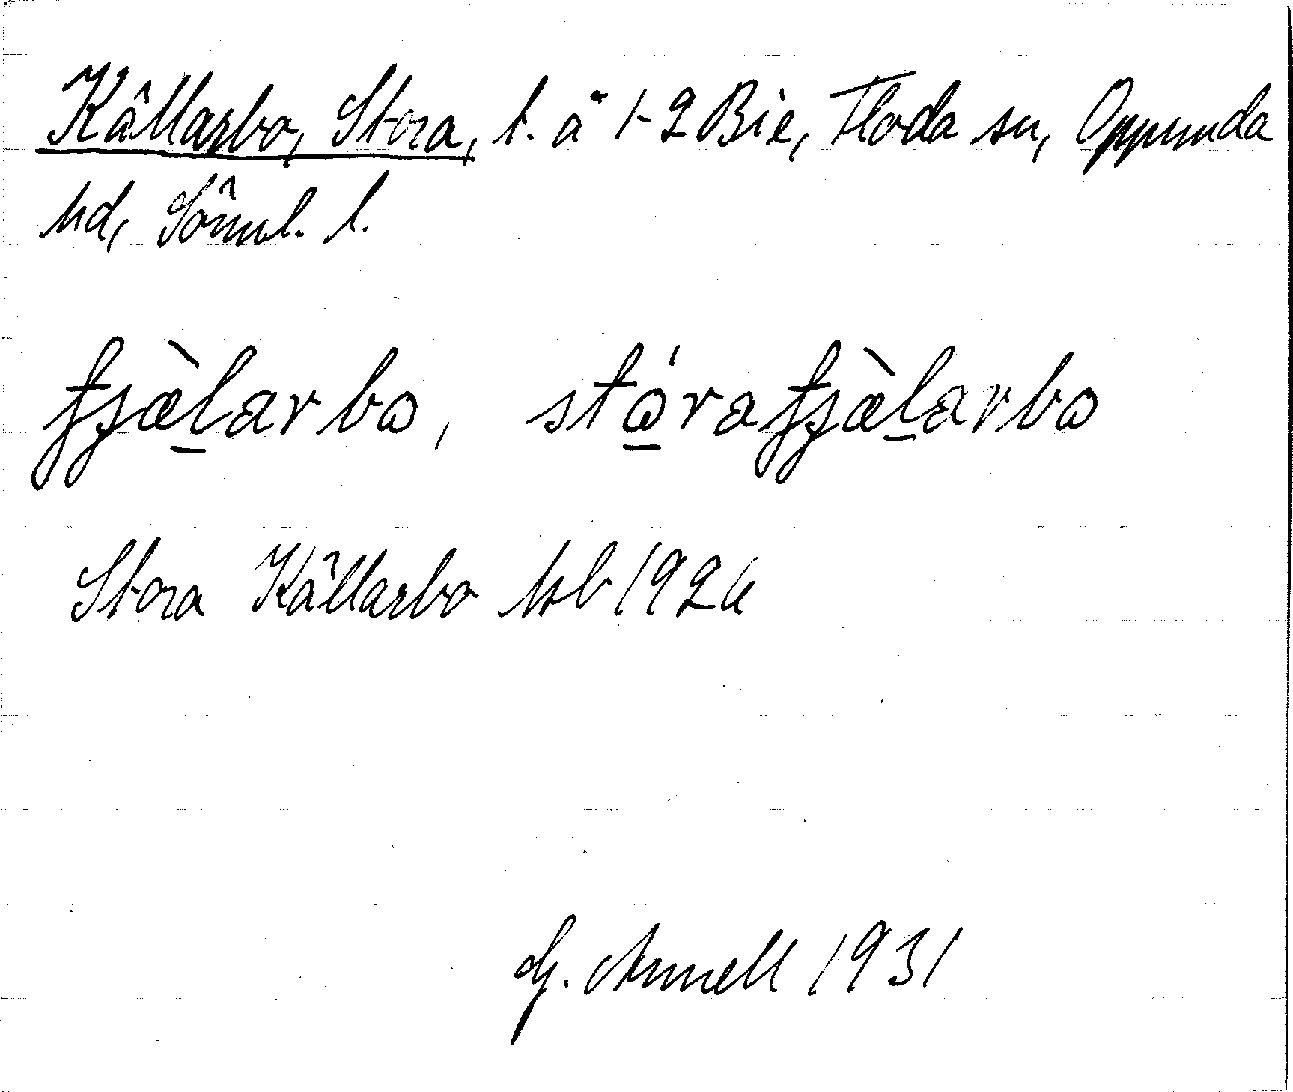 Källarbo, Stora, t. å 1-2 Bie, Floda sn, Oppunda
hd, Söml. l.
fjæ̀larbo, stórafjæ̀larbo
Stora Källarbo Jb 1926
G. Annell 1931